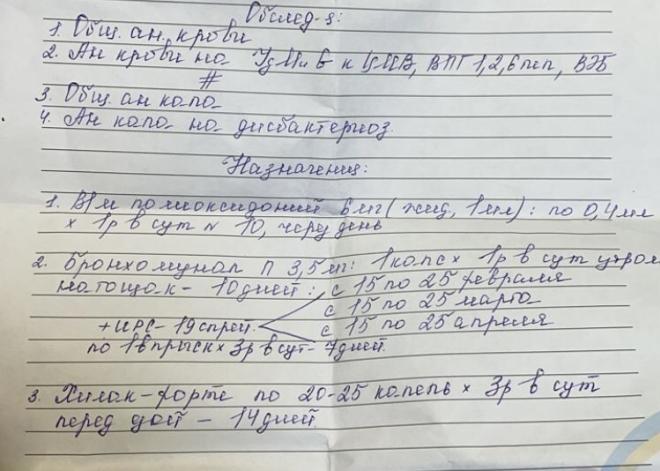 Обслед-я:
1. Общ. ан. крови
2. Ан крови на IgM и G к ЦМВ, ВПГ 1,2,6 тип, ВЭБ
#
3. Общ. ан кала
4. Ан кала на дисбактериоз.
Назначения:
1. В/м полиоксидоний 6мг (жид, 1мл): по 0,4мл
× 1р в сут № 10, через день
2. Бронхомунал П 3,5мг: 1 капс × 1р в сут утром
натощак - 10 дней: с 15 по 25 февраля
с 15 по 25 марта
+ ИРС-19 спрей с 15 по 25 апреля
по 1 впрыск × 3р в сут - 7 дней.
3. Хилак-форте по 20-25 капель × 3р в сут
перед едой - 14 дней